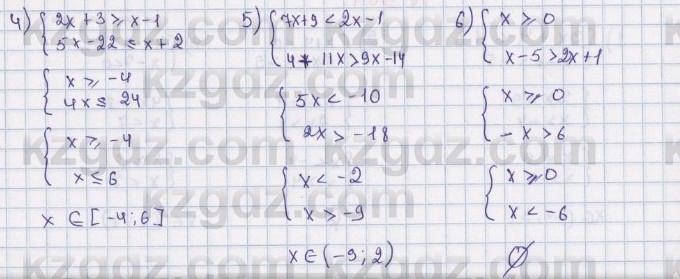 4) { 2x + 3 ≥ x - 1
5x - 22 ≤ x + 2
{ x ≥ -4
4x ≤ 24
{ x ≥ -4
x ≤ 6
x ∈ [-4; 6]
5) { 7x + 9 < 2x - 1
4 + 11x > 9x - 14
{ 5x < -10
2x > -18
{ x < -2
x > -9
x ∈ (-9; 2)
6) { x ≥ 0
x - 5 > 2x + 1
{ x ≥ 0
-x > 6
{ x ≥ 0
x < -6
∅
kzgdz.com